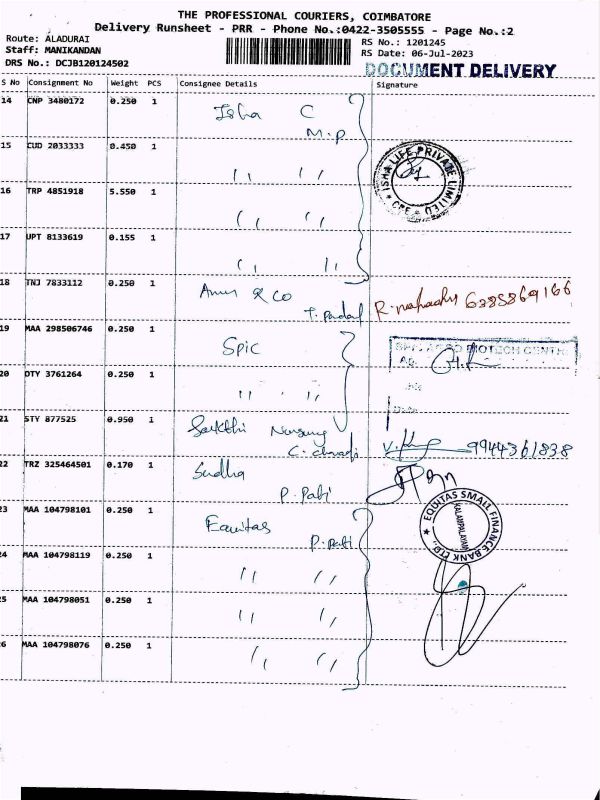 THE PROFESSIONAL COURIERS, COIMBATORE
Delivery Runsheet - PRR - Phone No.:0422-3505555 - Page No.:2
Route: ALADURAI
Staff: MANIKANDAN
DRS No.: DCJB120124502
RS No.: 1201245
RS Date: 06-Jul-2023
DOCUMENT DELIVERY
S No Consignment No Weight PCS Consignee Details Signature
14 CNP 3480172 0.250 1 Isha C
M.P
15 CUD 2033333 0.450 1 ,, ,,
ISHA LIFE PRIVATE LIMITED
16 TRP 4851918 5.550 1 ,, ,,
17 UPT 8133619 0.155 1 ,, ,,
18 TNJ 7833112 0.250 1 & Co
6385869166
19 MAA 298506746 0.250 1 Spic
BIOTECH CENTR
20 DTY 3761264 0.250 1 ,, ,,
21 STY 877525 0.950 1 Sakthi
9944361838
22 TRZ 325464501 0.170 1 Sudha
P. Pati
23 MAA 104798101 0.250 1 Equitas
P. Pati
EQUITAS SMALL FINANCE BANK LTD
KALAMPALAYAM
24 MAA 104798119 0.250 1 ,, ,,
25 MAA 104798051 0.250 1 ,, ,,
26 MAA 104798076 0.250 1 ,, ,,